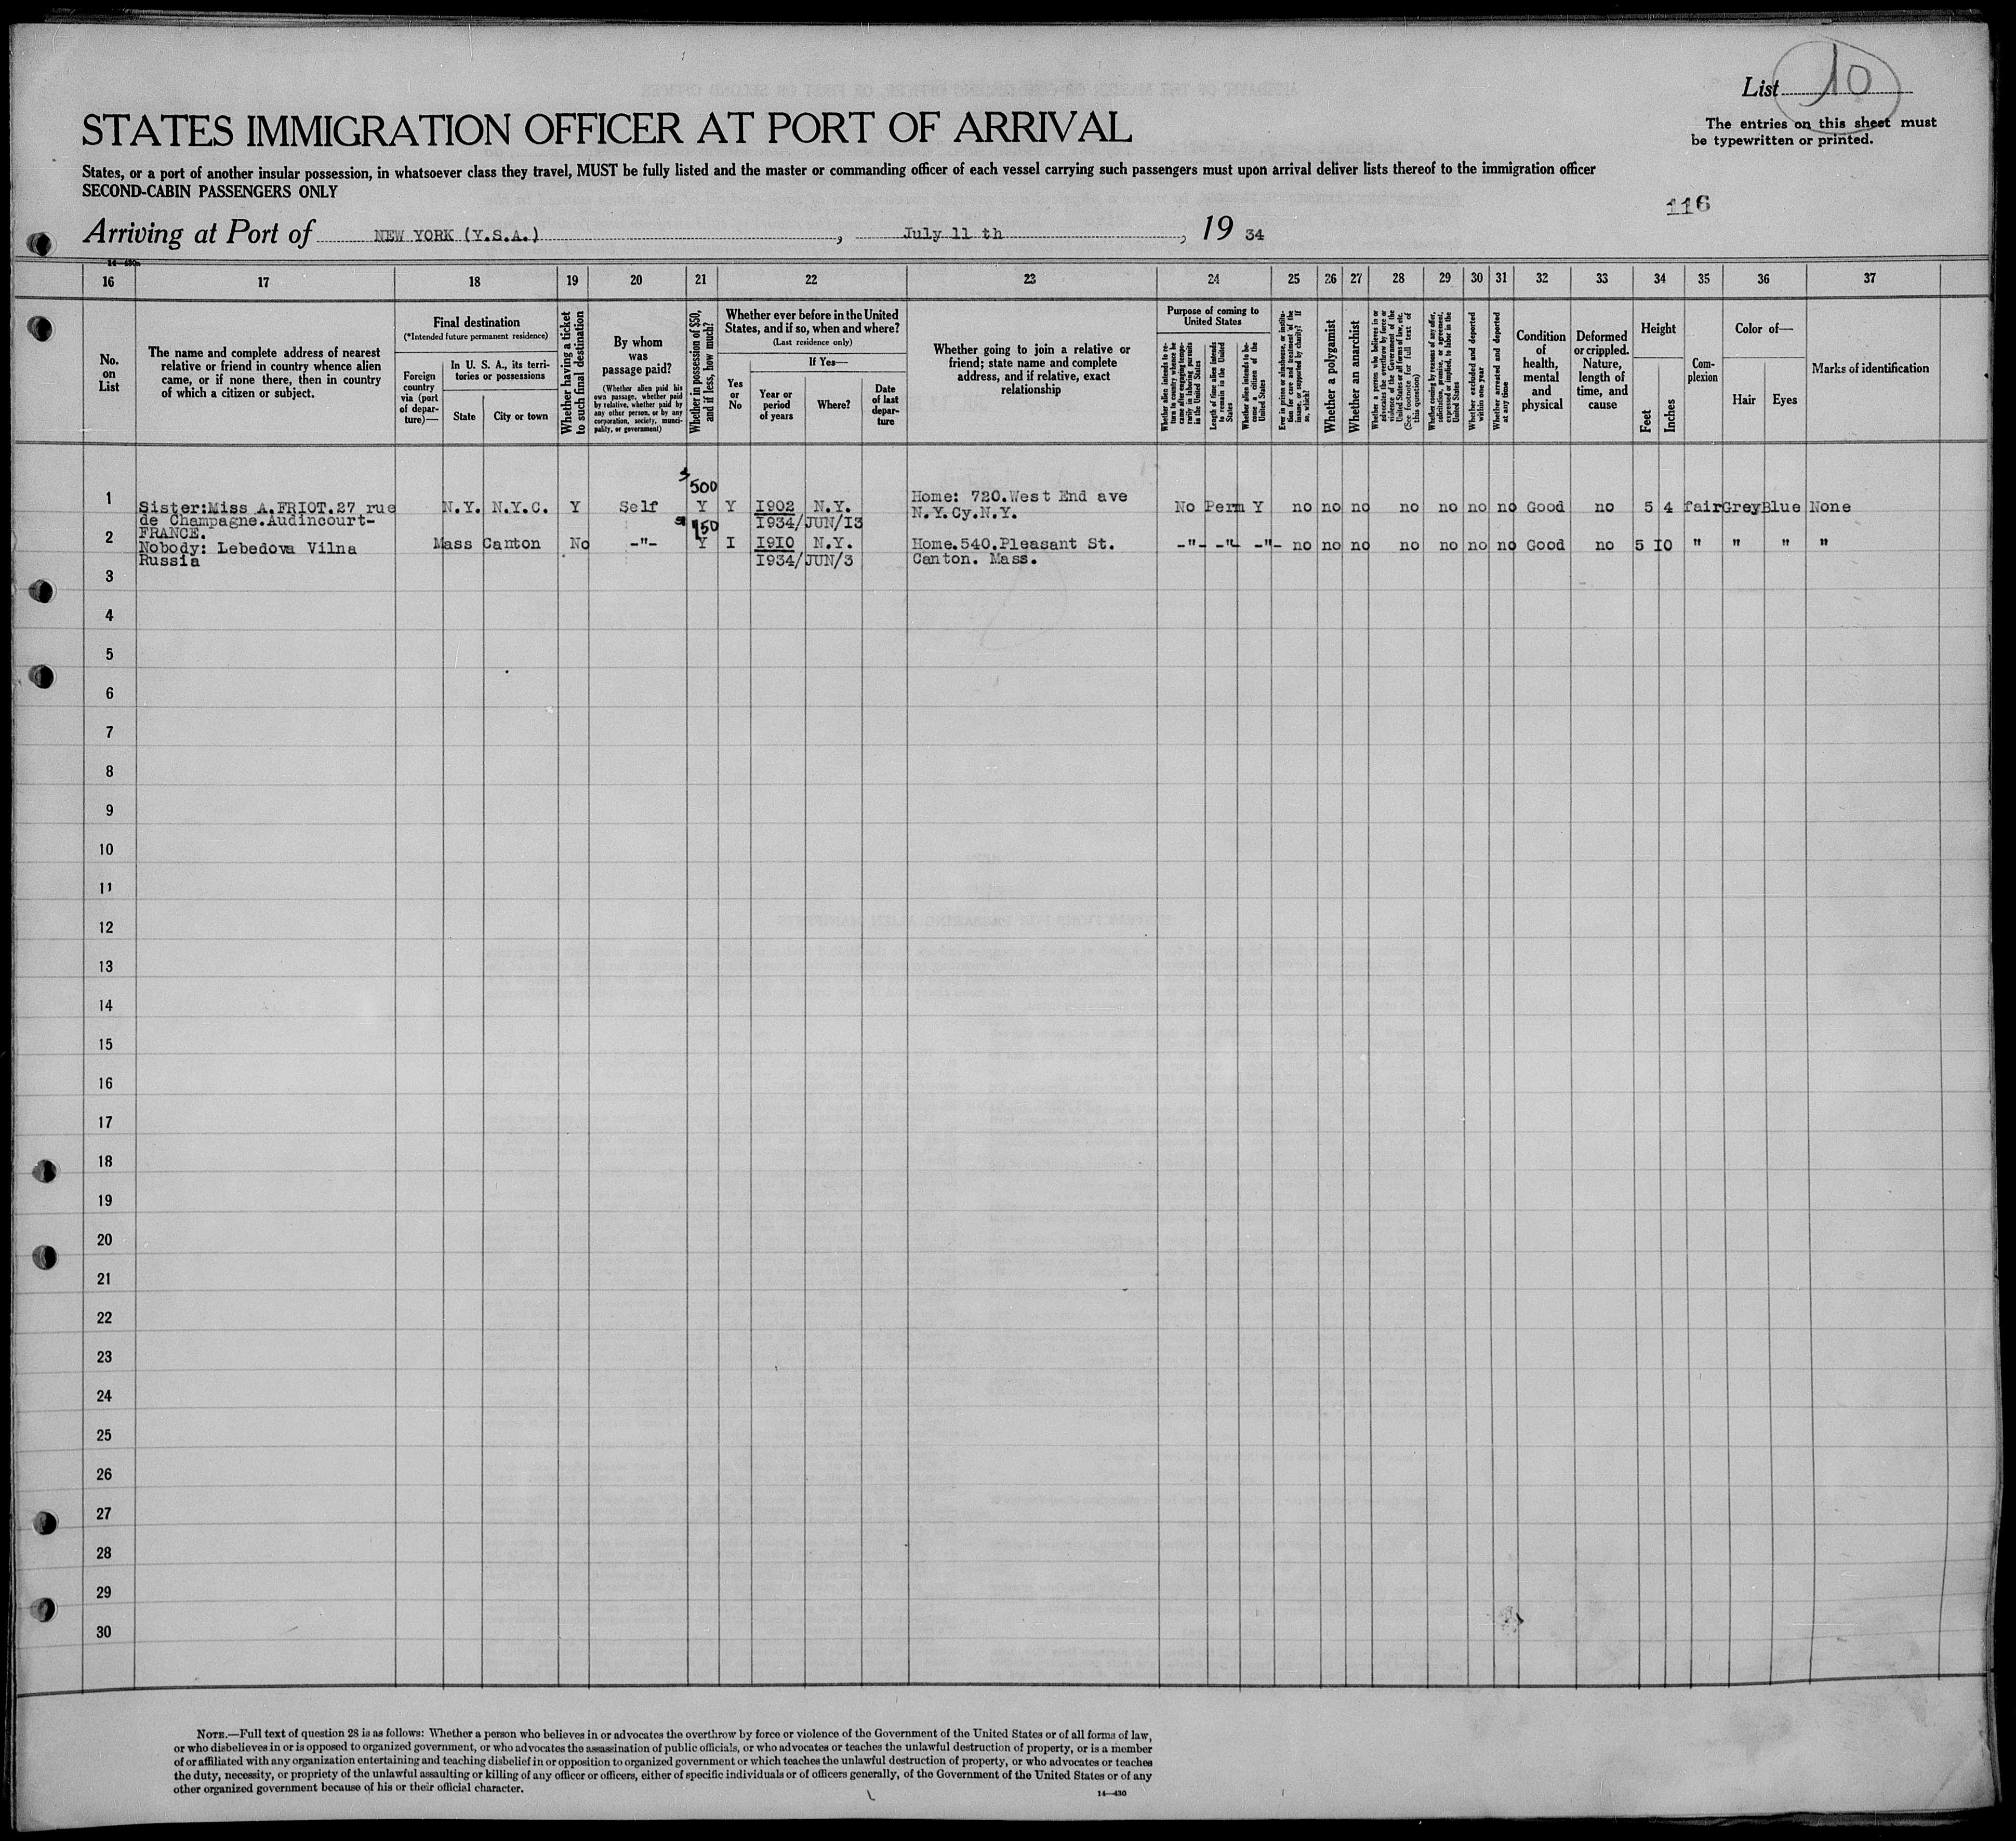 List 10
STATES IMMIGRATION OFFICER AT PORT OF ARRIVAL
The entries on this sheet must
be typewritten or printed.
States, or a port of another insular possession, in whatsoever class they travel, MUST be fully listed and the master or commanding officer of each vessel carrying such passengers must upon arrival deliver lists thereof to the immigration officer
SECOND-CABIN PASSENGERS ONLY
116
Arriving at Port of NEW YORK (Y.S.A.), July 11 th, 19 34
16 17 18 19 20 21 22 23 24 25 26 27 28 29 30 31 32 33 34 35 36 37
No. on List
The name and complete address of nearest
relative or friend in country whence alien
came, or if none there, then in country
of which a citizen or subject.
Final destination
(*Intended future permanent residence)
Foreign country via (port of departure)—
In U. S. A., its territories or possessions
State
City or town
Whether having a ticket to such final destination
By whom was passage paid?
(Whether alien paid his own passage, whether paid by relative, whether paid by any other person, or by any corporation, society, municipality, or government)
Whether in possession of $50, and if less, how much?
Whether ever before in the United States, and if so, when and where?
(Last residence only)
Yes or No
If Yes—
Year or period of years
Where?
Date of last departure
Whether going to join a relative or
friend; state name and complete
address, and if relative, exact
relationship
Purpose of coming to United States
Whether alien intends to return to country whence he came after engaging temporarily in laboring pursuits in the United States
Length of time alien intends to remain in the United States
Whether alien intends to become a citizen of the United States
Ever in prison or almshouse, or institution for care and treatment of the insane, or supported by charity? If so, which?
Whether a polygamist
Whether an anarchist
Whether a person who believes in or advocates the overthrow by force or violence of the Government of the United States or all forms of law, etc. (See footnote for full text of this question)
Whether coming by reasons of any offer, solicitation, promise, or agreement, expressed or implied, to labor in the United States
Whether excluded and deported within one year
Whether arrested and deported at any time
Condition of health, mental and physical
Deformed or crippled. Nature, length of time, and cause
Height
Feet
Inches
Complexion
Color of—
Hair
Eyes
Marks of identification
$500
1 Sister:Miss A.FRIOT.27 rue N.Y. N.Y.C. Y Self Y Y I902 N.Y. Home: 720.West End ave No Perm Y no no no no no no no Good no 5 4 fair Grey Blue None
de Champagne.Audincourt- $150 I934/JUN/I3 N.Y.Cy.N.Y.
FRANCE.
2 Nobody: Lebedova Vilna Mass Canton No -"- Y I I9I0 N.Y. Home.540.Pleasant St. -"- -"- -"- no no no no no no no Good no 5 I0 " " " "
Russia I934/JUN/3 Canton. Mass.
3
4
5
6
7
8
9
10
11
12
13
14
15
16
17
18
19
20
21
22
23
24
25
26
27
28
29
30
NOTE.—Full text of question 28 is as follows: Whether a person who believes in or advocates the overthrow by force or violence of the Government of the United States or of all forms of law,
or who disbelieves in or is opposed to organized government, or who advocates the assassination of public officials, or who advocates or teaches the unlawful destruction of property, or is a member
of or affiliated with any organization entertaining and teaching disbelief in or opposition to organized government or which teaches the unlawful destruction of property, or who advocates or teaches
the duty, necessity, or propriety of the unlawful assaulting or killing of any officer or officers, either of specific individuals or of officers generally, of the Government of the United States or of any
other organized government because of his or their official character.
14—430